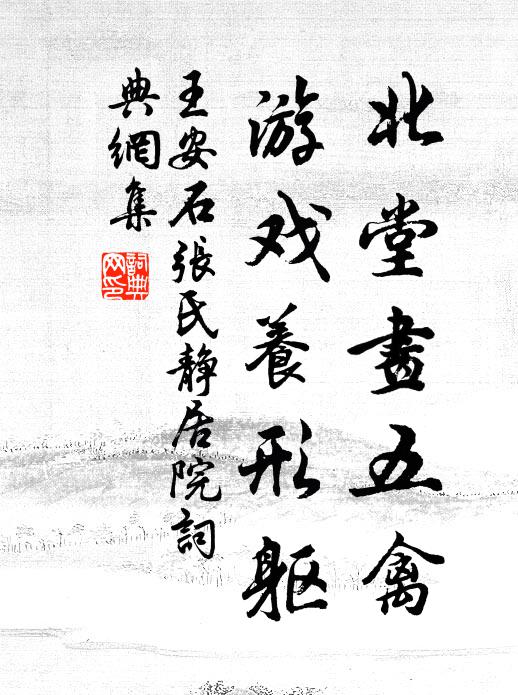 北堂畫五禽
游戏養形躯
王安石張氏静居院詞
典網集
詞典
网印